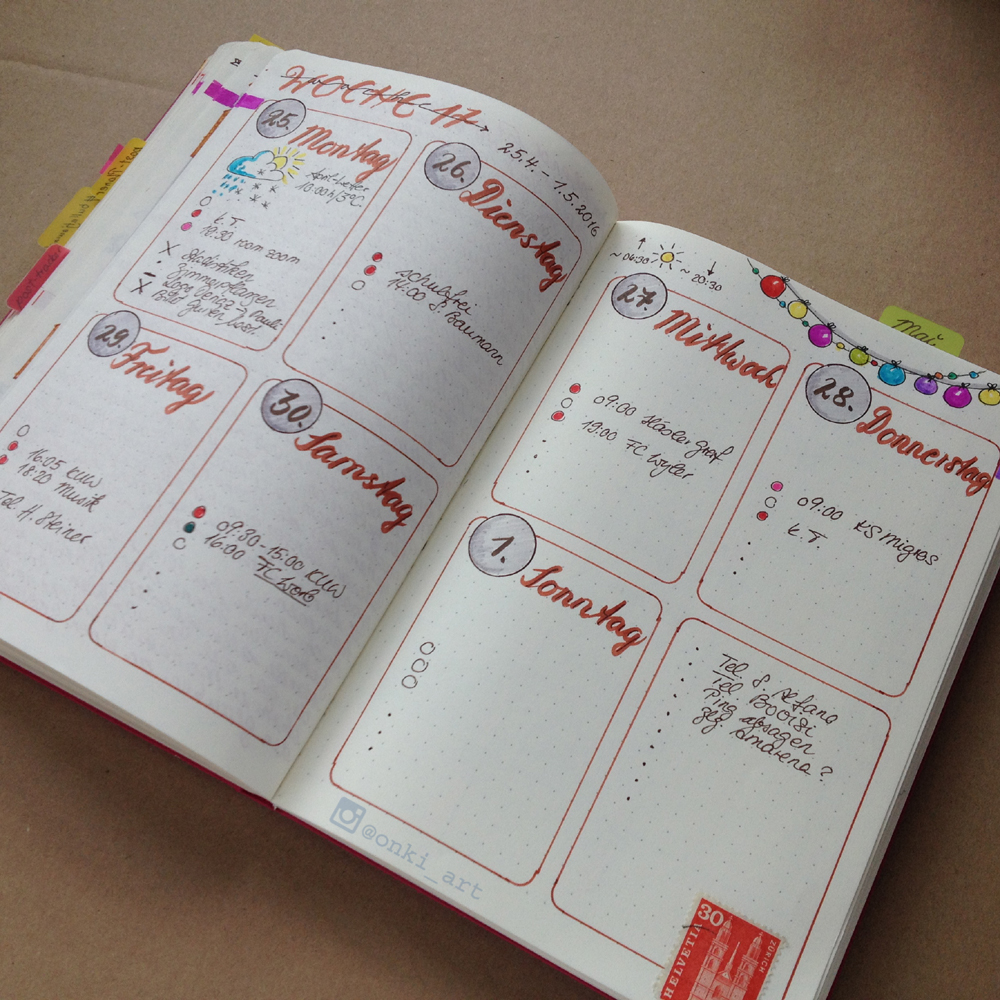 WOCHE 17
25.4. - 1.5.2016
25.
Montag
April-Wetter
10:00h/5°C
k.T.
18:30 room zoom
Zimmerpflanzen
26.
Dienstag
schulfrei
14:00 S. Baumann
29.
Freitag
16:05 KUW
18:20 Musik
Tel H. Steiner
30.
Samstag
09:30-15:00 KUW
16:00 FC Worb
~ 06:30
~ 20:30
27.
Mittwoch
09:00 Häsler Graf
19:00 FC Wyler
Mai
28.
Donnerstag
09:00 KS Migros
k.T.
1.
Sonntag
Tel. S.
Tel.
Ping absagen
Amarena?
@onki_art
30
HELVETIA
ZÜRICH